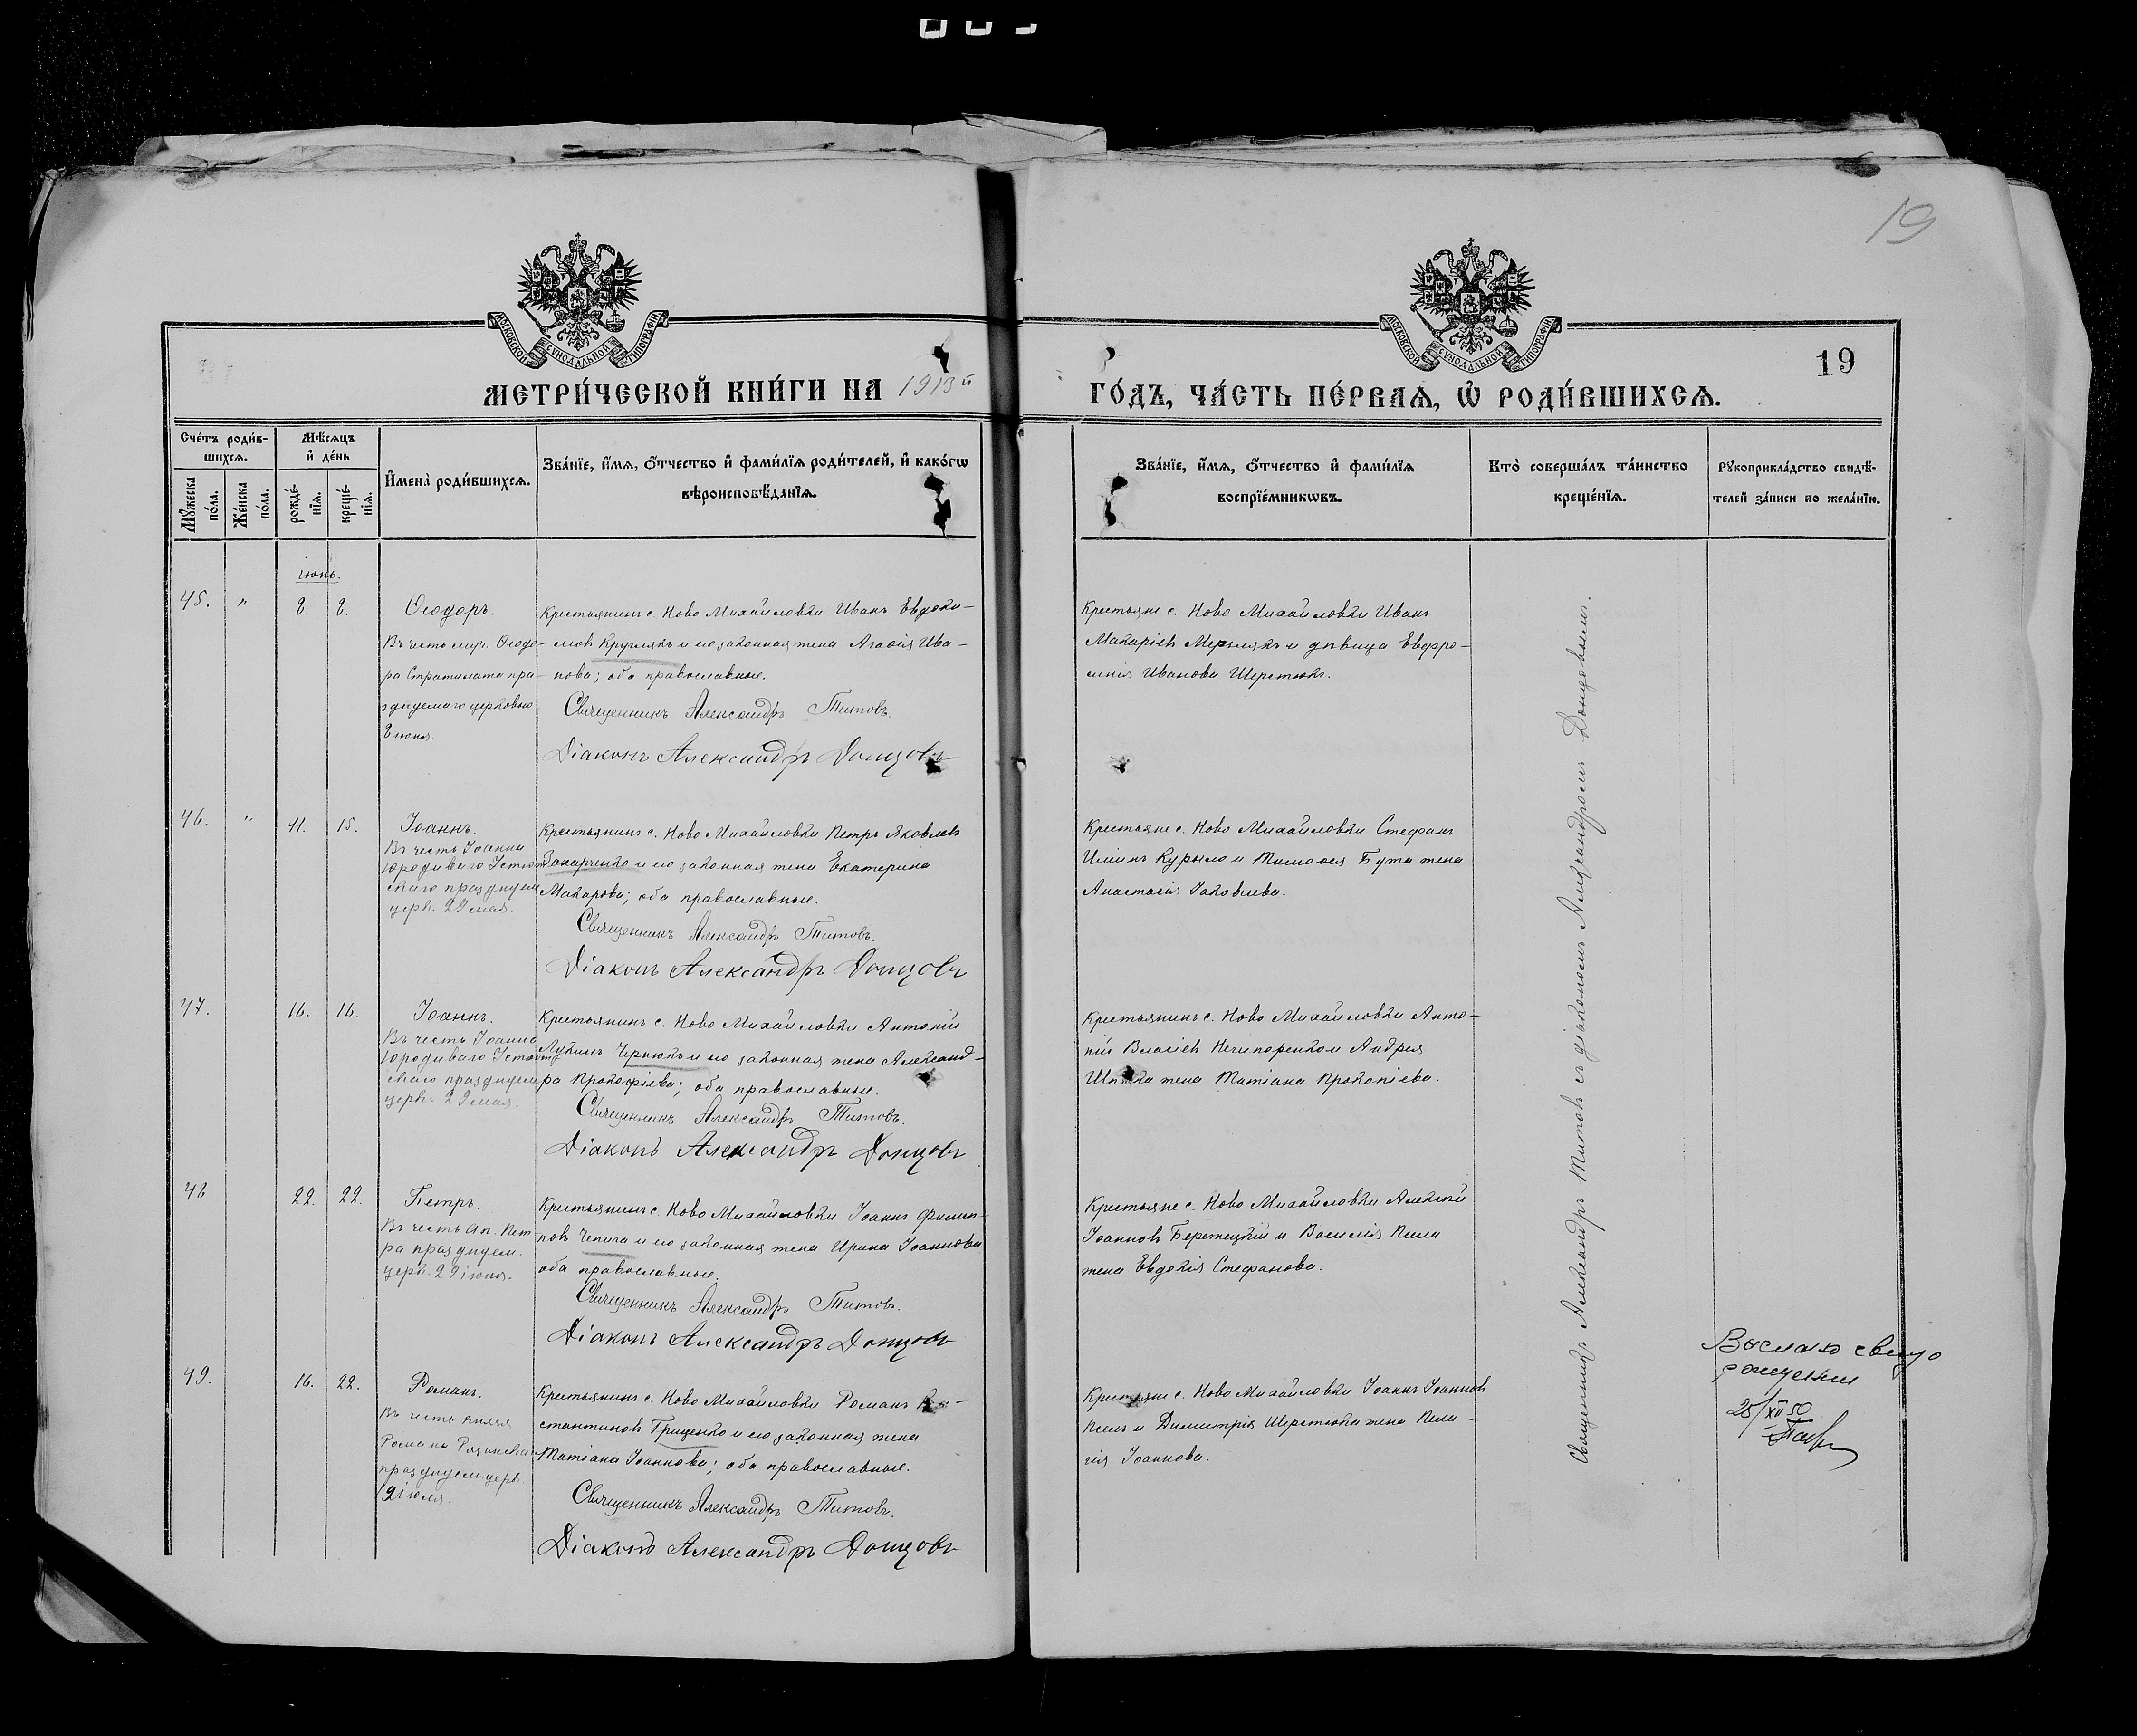 19
МОСКОВСКОЙ СѴНОДАЛЬНОЙ ТИПОГРАФІИ
МОСКОВСКОЙ СѴНОДАЛЬНОЙ ТИПОГРАФІИ
19
МЕТРИ́ЧЕСКОЙ КНИ́ГИ НА 1913й ГО́ДЪ, ЧА́СТЬ ПЕ́РВАѦ, Ѽ РОДИ́ВШИХСѦ.
Сче́тъ роди́в-
шихсѧ.
Мꙋ́жеска по́ла.
Же́нска по́ла.
Мѣ́сѧцъ
и҆ де́нь
рожде́-
нїѧ.
креще́-
нїѧ.
И҆мена̀ роди́вшихсѧ.
Зва́нїе, и҆́мѧ, ѻ҆́тчество и҆ фами́лїѧ роди́телей, и҆ како́гѡ
вѣроисповѣ́данїѧ.
Зва́нїе, и҆́мѧ, ѻ҆́тчество и҆ фами́лїѧ
воспрїе́мникѡвъ.
Кто̀ соверша́лъ та́инство
креще́нїѧ.
Рꙋкоприкла́дство свидѣ́-
телей за́писи по жела́нїю.
іюнь.
45. " 8. 8.
Ѳеодоръ.
Въ честь муч. Ѳеодо-
ра Стратилата пра-
зднуемаго церковью
8 июня.
Крестьянинъ с. Ново Михайловки Иванъ Евдоки-
мовъ Кругляк и его законная жена Агаѳія Ива-
нова; оба православные.
Священникъ Александръ Титовъ.
Діаконъ Александръ Донцовъ
Крестьяне с. Ново Михайловки Иванъ
Макаріевъ и дѣвица Евфро-
синія Иванова Шерстюкъ.
46. " 11. 15.
Іоаннъ.
Въ честь Іоанна
Юродиваго Устюж
скаго празднуем
церк. 29 мая.
Крестьянинъ с. Ново Михайловки Петръ Яковлевъ
Захарченко и его законная жена Екатерина
Макарова; оба православные.
Священникъ Александръ Титовъ.
Діаконъ Александръ Донцовъ
Крестьяне с. Ново Михайловки Стефанъ
Ильинъ Курыло и Тимоѳея Бута жена
Анастасія Іаковлева.
47. 16. 16.
Іоаннъ.
Въ честь Іоанна
Юродиваго Устюж
скаго празднуем
церк. 29 мая.
Крестьянинъ с. Ново Михайловки Антоній
Лукинъ Чернюкъ и его законная жена Александ-
ра Прокофіева; оба православные.
Священникъ Александръ Титовъ.
Діаконъ Александръ Донцовъ
Крестьянинъ с. Ново Михайловки Анто-
ній Власіевъ Нечипоренко и Андрея
жена Татіана Прокопіева.
48 22. 22.
Петръ.
Въ честь ап. Пет
ра празднуем.
церк. 29 июня.
Крестьянинъ с. Ново Михайловки Іоаннъ Филип-
повъ Чепига и его законная жена Ирина Іоаннова
оба православные.
Священникъ Александръ Титовъ.
Діаконъ Александръ Донцовъ
Крестьяне с. Ново Михайловки Алексѣй
Іоанновъ Бережецкій и Василія
жена Евдокія Стефанова.
49. 16. 22.
Романъ.
Въ честь князя
Романа Рязанскаго
празднуем церк.
Крестьянинъ с. Ново Михайловки Романъ Кон-
стантиновъ Гриценко и его законная жена
Татіана Іоаннова; оба православные.
Священникъ Александръ Титовъ.
Діаконъ Александръ Донцовъ
Крестьяне с. Ново Михайловки Іоаннъ Іоанновъ
и Димитрія Шерстюка жена Пела-
гія Іоаннова.
Священникъ Александръ Титовъ съ діакономъ Александромъ Донцовымъ.
25/XII 50